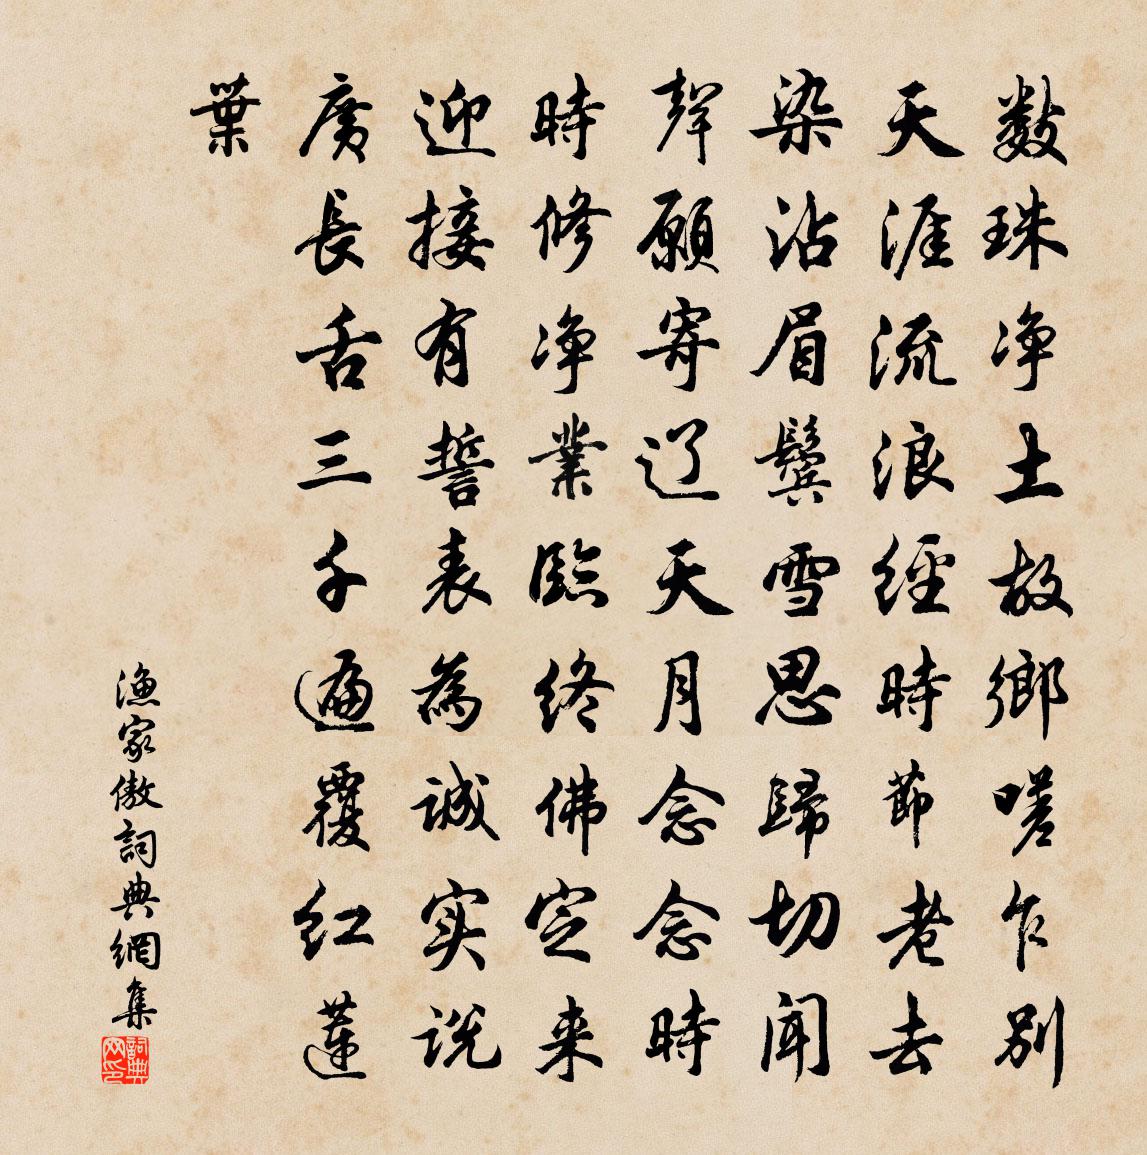 數珠净土故鄉嗟乍别
天涯流浪經時節老去
染沾眉鬢雪思歸切聞
聲願寄辽天月念念時
時修净業臨終佛定来
迎接有誓表為誠实説
廣長舌三千遍覆紅蓮
葉
漁家傲詞典網集
詞典网印